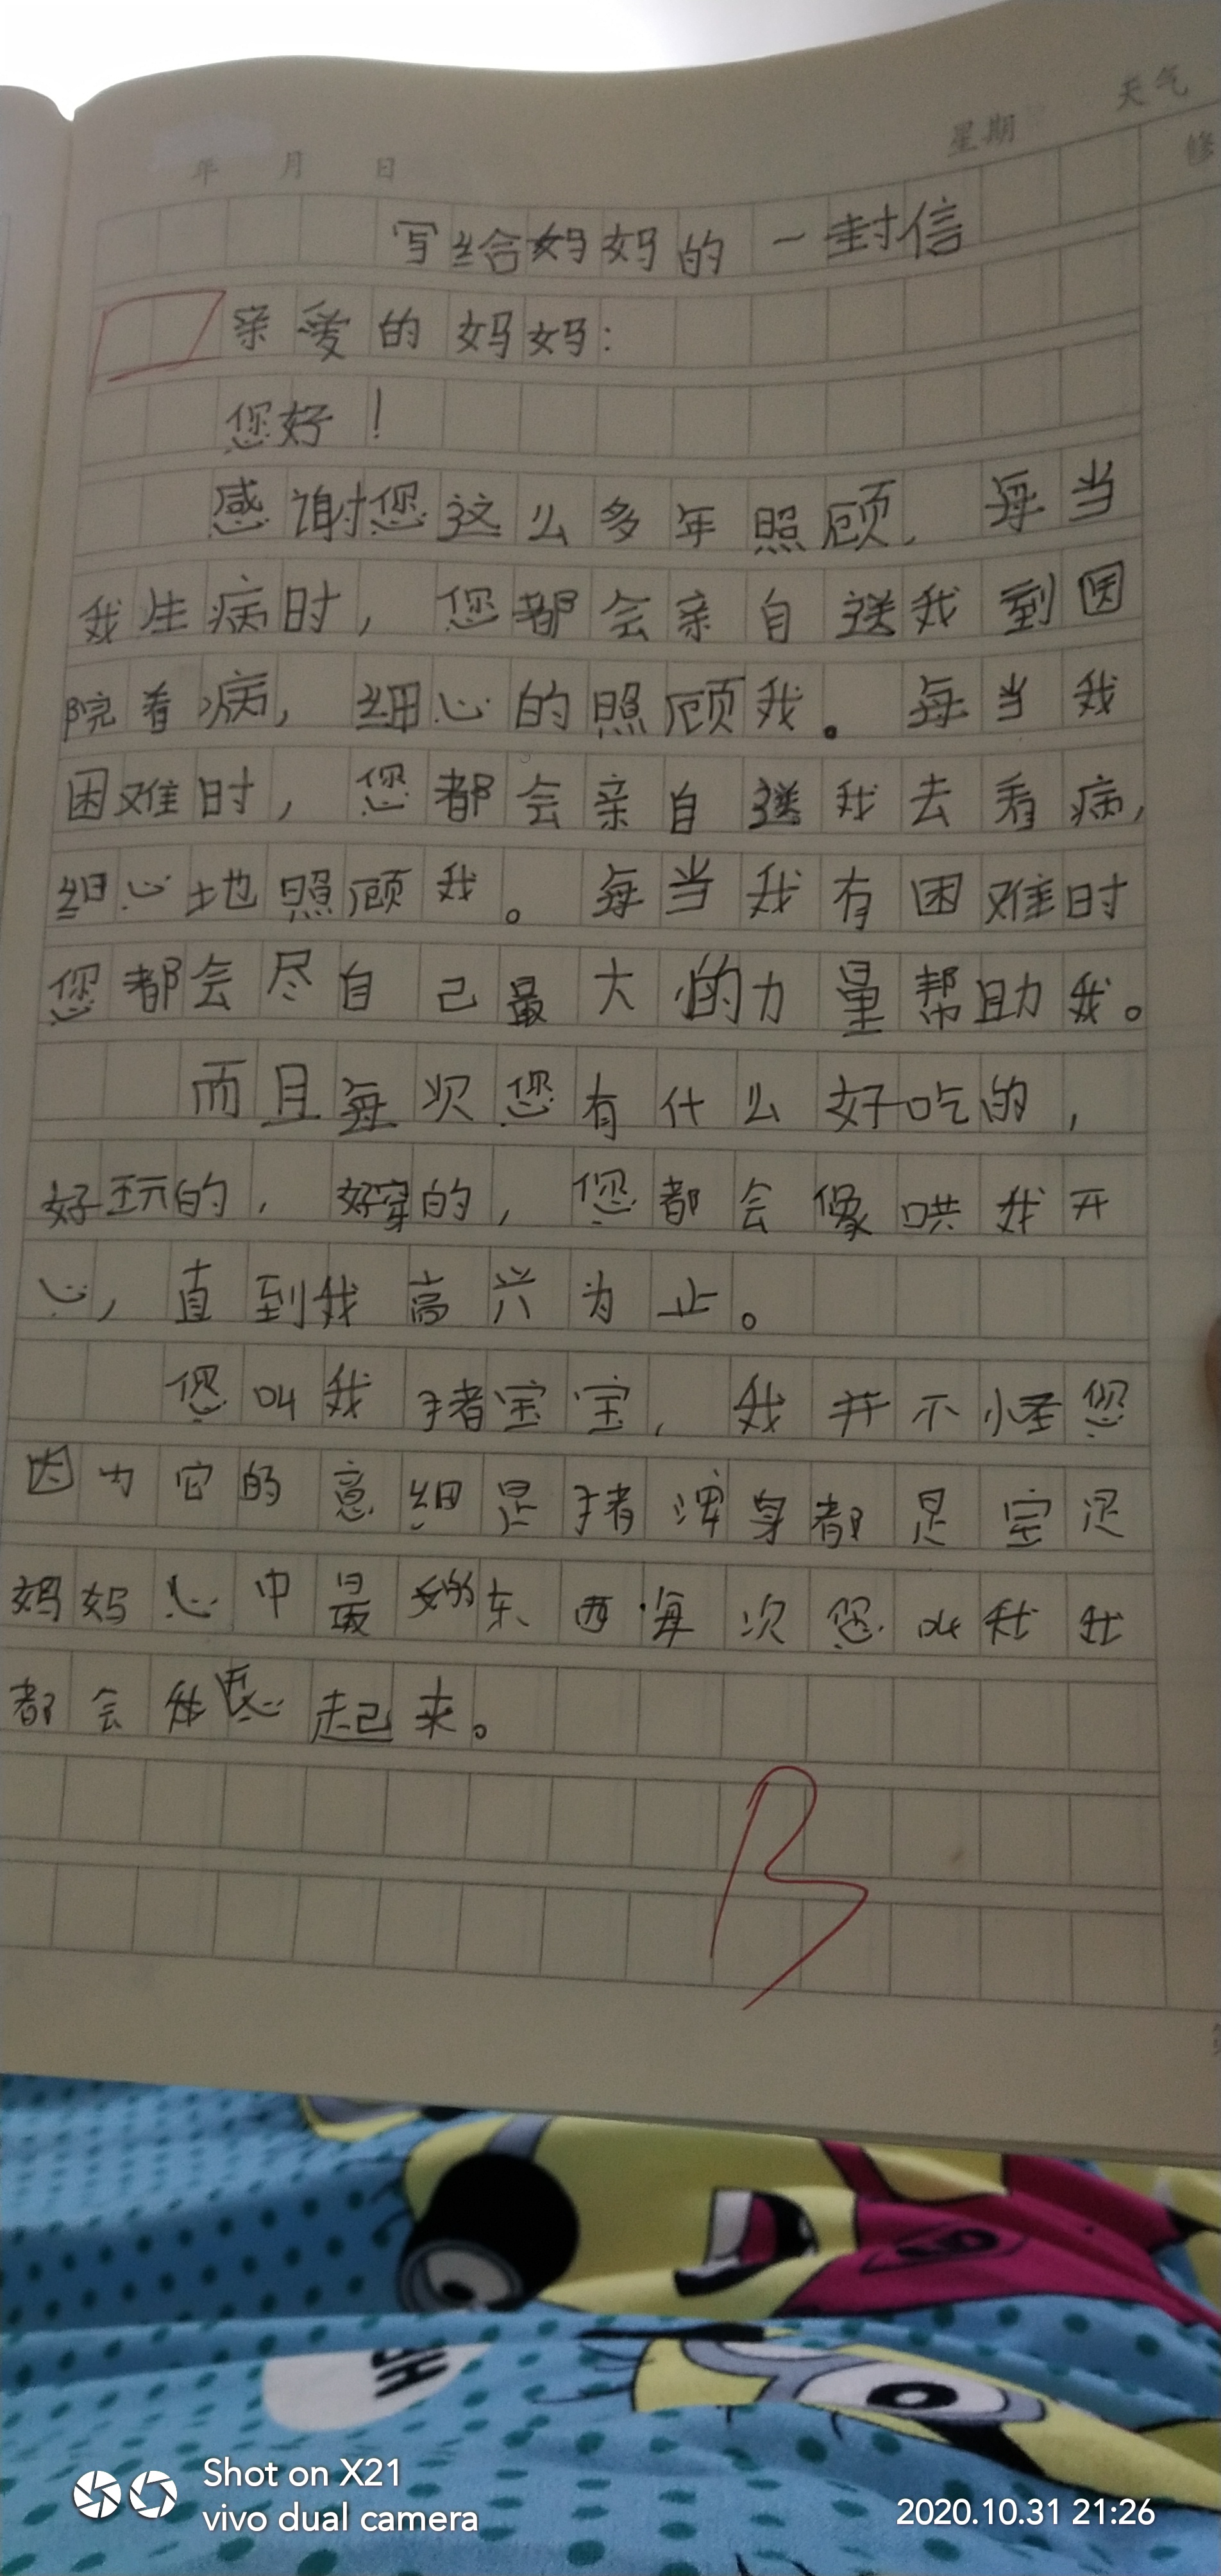 天气
年 月 日 星期
修
写给妈妈的一封信
亲爱的妈妈:
您好!
感谢您这么多年照顾,每当
我生病时,您都会亲自送我到医
院看病,细心的照顾我。每当我
困难时,您都会亲自送我去看病,
细心地照顾我。每当我有困难时
您都会尽自己最大的力量帮助我。
而且每次您有什么好吃的,
好玩的,好穿的,您都会像哄我开
心,直到我高兴为止。
您叫我猪宝宝,我并不怪您
因为它的意细是猪浑身都是宝是
妈妈心中最的东西每次您叫我我
都会起来。
Shot on X21
vivo dual camera
2020.10.31 21:26